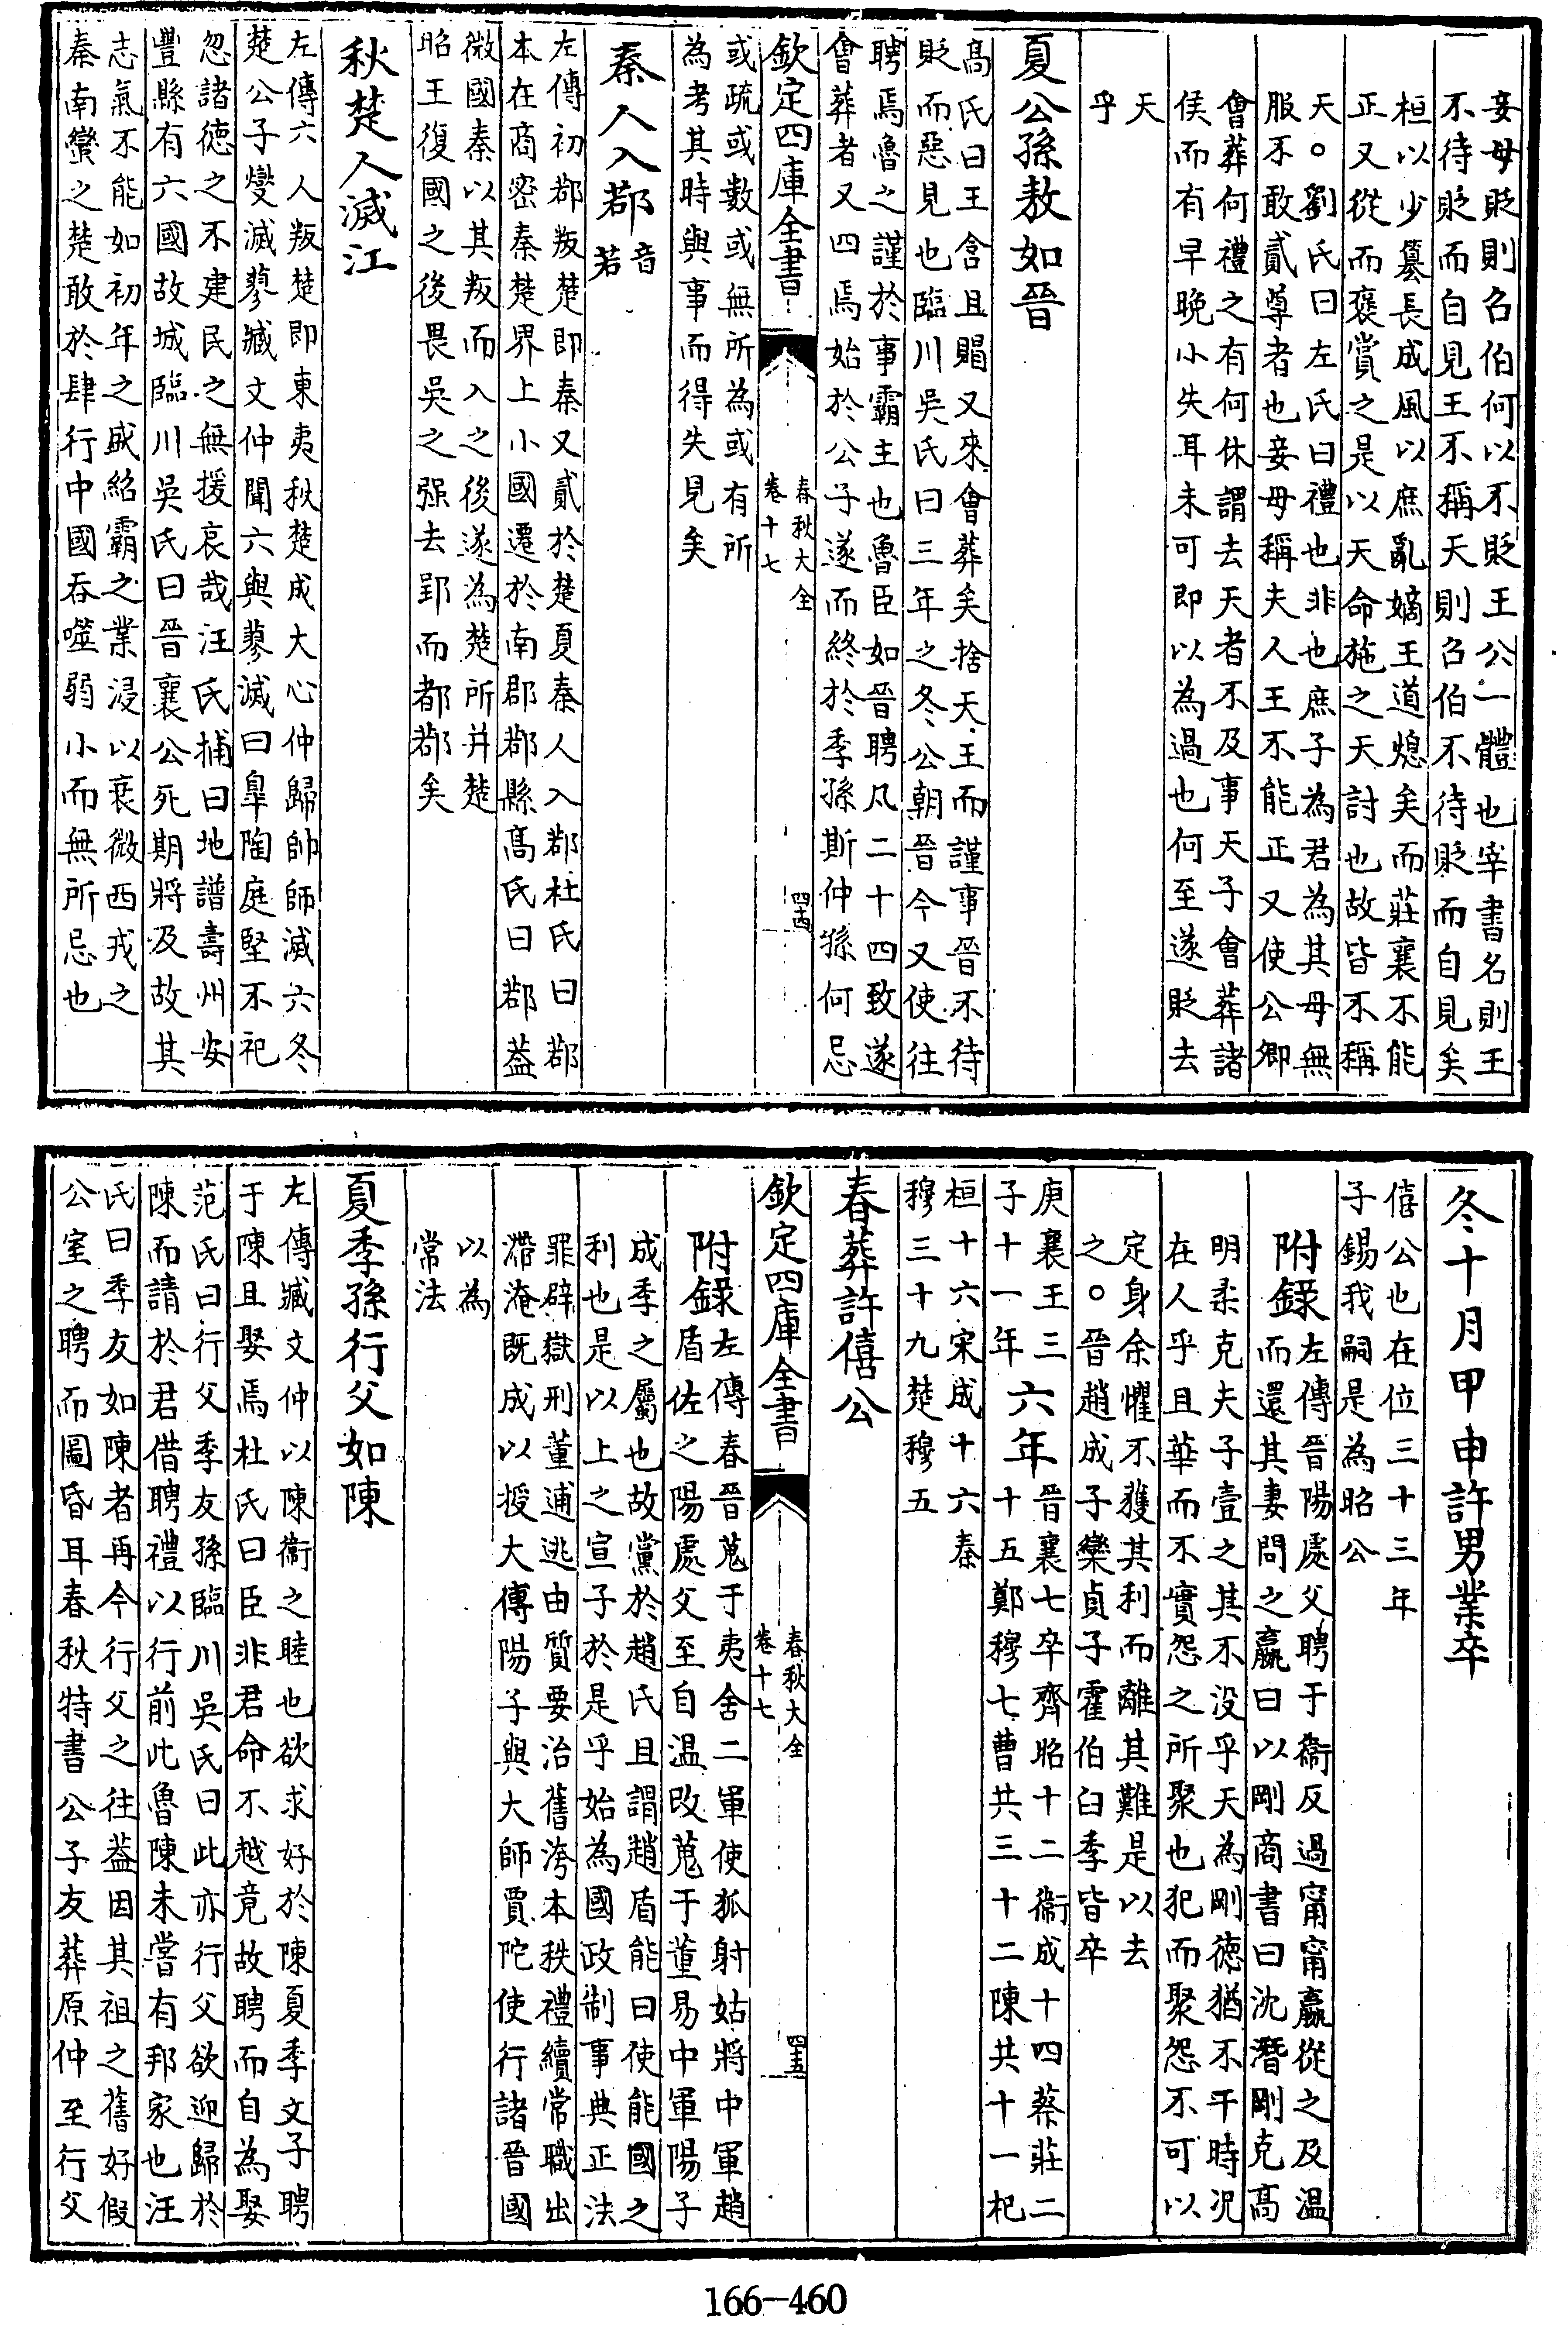 妾母貶則名伯何以不貶王公一體也宰書名則王
不待貶而自見王不稱天則召伯不待貶而自見矣
桓以少簒長成風以庶亂嫡王道熄矣而莊襄不能
正又從而褒賞之是以天命施之天討也故皆不稱
天○劉氏曰左氏曰禮也非也庶子為君為其母無
服不敢貳尊者也妾母稱夫人王不能正又使公卿
會葬何禮之有何休謂去天者不及事天子會葬諸
侯而有早晚小失耳未可即以為過也何至遂貶去
天
乎
夏公孫敖如晉
髙氏曰王含且賵又來會葬矣捨天王而謹事晉不待
貶而惡見也臨川吳氏曰三年之冬公朝晉今又使往
聘焉魯之謹於事霸主也魯臣如晉聘凡二十四致遂
會葬者又四焉始於公子遂而終於季孫斯仲孫何忌
欽定四庫全書
春秋大全
卷十七
四十四
或疏或數或無所為或有所
為考其時與事而得失見矣
秦人入鄀音
若
左傳初鄀叛楚即秦又貳於楚夏秦人入鄀杜氏曰鄀
本在商密秦楚界上小國遷於南郡鄀縣髙氏曰鄀葢
微國秦以其叛而入之後遂為楚所并楚
昭王復國之後畏吳之强去郢而都鄀矣
秋楚人滅江
左傳六人叛楚即東夷秋楚成大心仲歸帥師滅六冬
楚公子燮滅蓼臧文仲聞六與蓼滅曰臯陶庭堅不祀
忽諸徳之不建民之無援哀哉汪氏補曰地譜壽州安
豐縣有六國故城臨川吳氏曰晉襄公死期將及故其
志氣不能如初年之盛紹霸之業浸以衰微西戎之
秦南蠻之楚敢於肆行中國吞噬弱小而無所忌也
冬十月甲申許男業卒
僖公也在位三十三年
子錫我嗣是為昭公
附錄左傳晉陽處父聘于衞反過甯甯嬴從之及温
而還其妻問之嬴曰以剛商書曰沈潛剛克髙
明柔克夫子壹之其不没乎天為剛徳猶不干時況
在人乎且華而不實怨之所聚也犯而聚怨不可以
定身余懼不獲其利而離其難是以去
之○晉趙成子欒貞子霍伯臼季皆卒
庚襄王三
子十一年六年晉襄七卒齊昭十二衞成十四蔡莊二
十五鄭穆七曹共三十二陳共十一杞
桓十六宋成十六秦
穆三十九楚穆五
春葬許僖公
欽定四庫全書
春秋大全
卷十七
四十五
附錄左傳春晉蒐于夷舍二軍使狐射姑將中軍趙
盾佐之陽處父至自温改蒐于董易中軍陽子
成季之屬也故黨於趙氏且謂趙盾能曰使能國之
利也是以上之宣子於是乎始為國政制事典正法
罪辟獄刑董逋逃由質要治舊洿本秩禮續常職出
滯淹既成以授大傅陽子與大師賈陀使行諸晉國
以為
常法
夏季孫行父如陳
左傳臧文仲以陳衞之睦也欲求好於陳夏季文子聘
于陳且娶焉杜氏曰臣非君命不越竟故聘而自為娶
范氏曰行父季友孫臨川吳氏曰此亦行父欲迎歸於
陳而請於君借聘禮以行前此魯陳未嘗有邦家也汪
氏曰季友如陳者再今行父之往葢因其祖之舊好假
公室之聘而圖昏耳春秋特書公子友葬原仲至行父
166-460